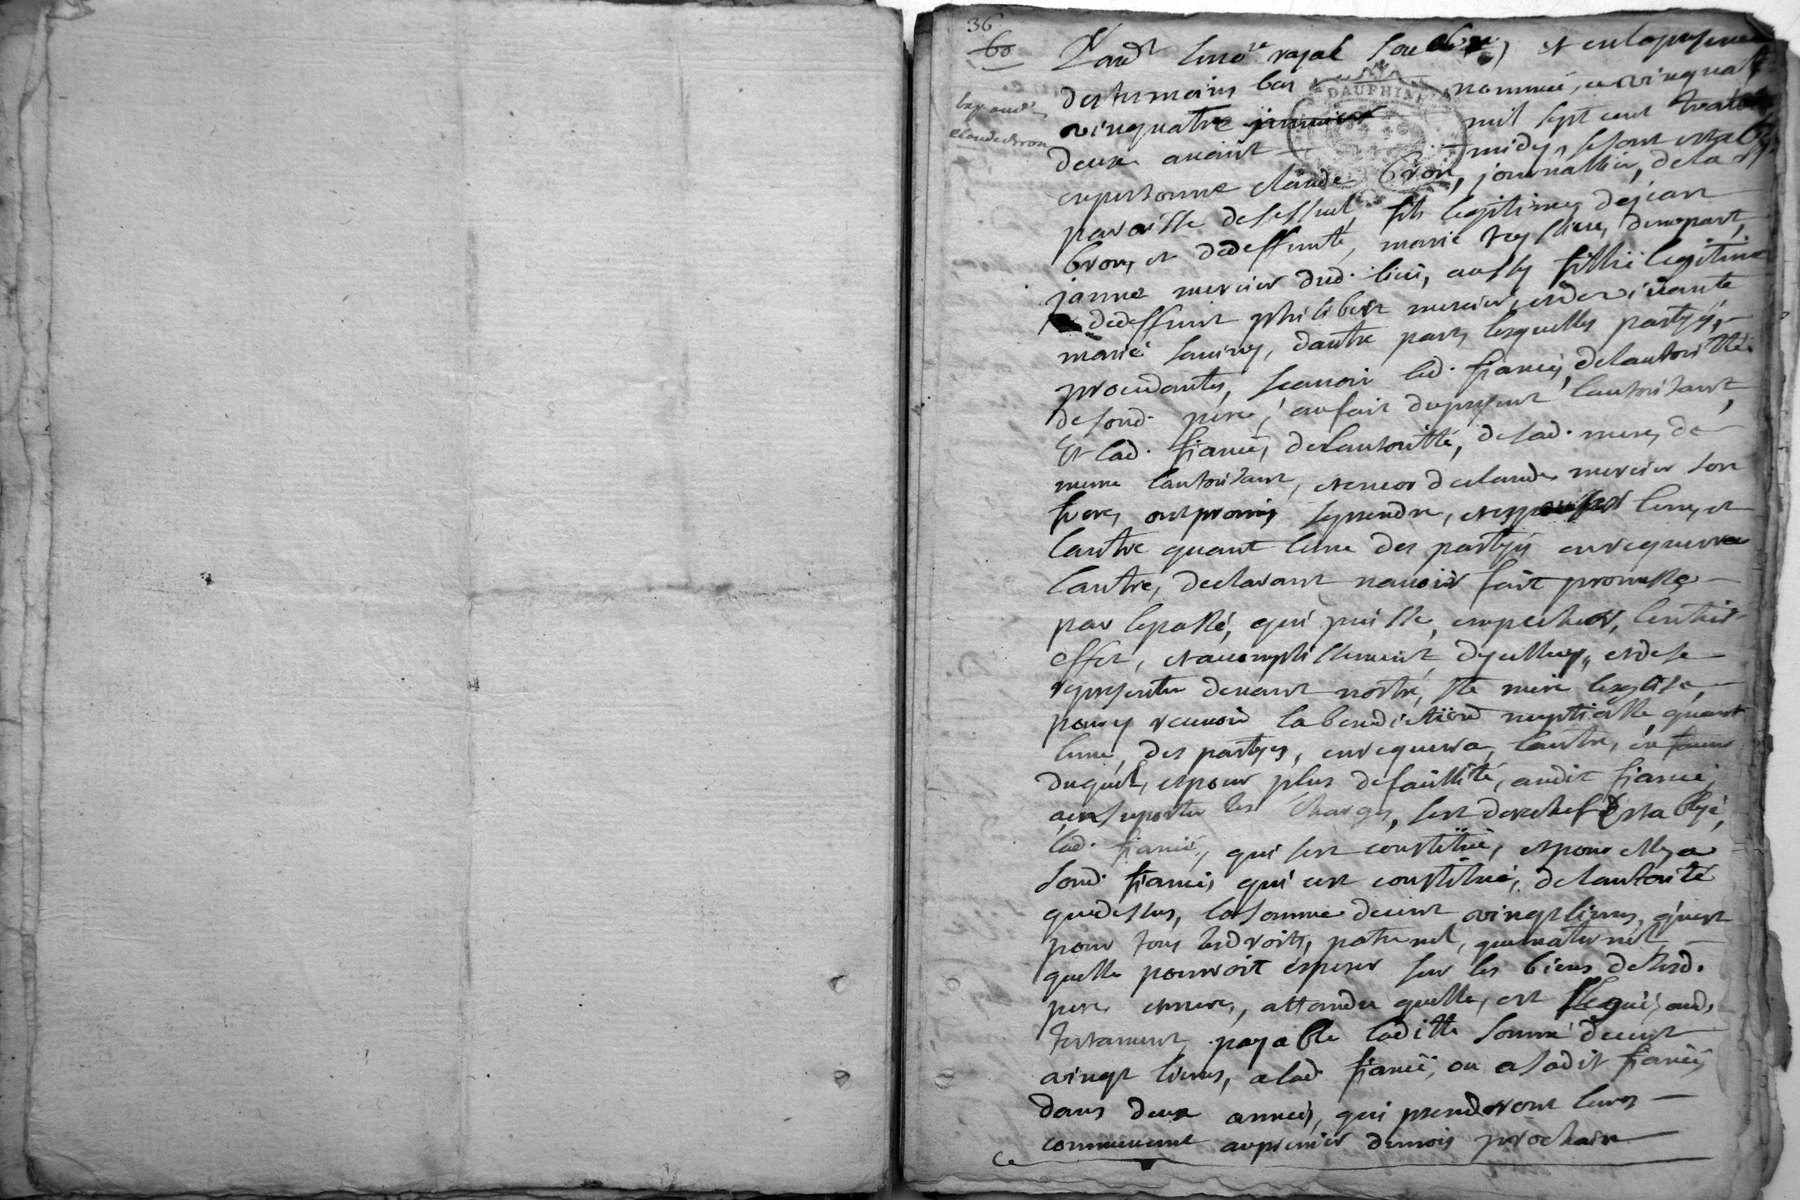 36
60
Claude Bron
DAUPHINE
des temoins bas nommé, ce vingquat
vingquatre janvier mil sept cent trante
deux avant midy, se sont establys
en personne claude Bron, journallier, de la
paroisse de fils legitime de jean
bron, et dedeffunte, marie teyssieu, dunepart,
janne mercier dud. lieu, aussy fillie legitime
dedeffunt philibert mercier, et de vivante
marie dautre part, lesquelles partyes,
procedantes, scauoir led. fiancé, delautoritté
de sond. père, au fait dupresent lautorisant,
Et lad. fiancée, delautoritté, de sad. mere, de
meme lautorisant, et encor de claude mercier son
frere, ont promis se prendre, et espouser lun, et
lautre quant lune des partyes en requerera
lautre, declarant nauoir fait promesse
par le passé, qui puisse, empecher, lentier
effet, et accomplissement dycelluy, et de se
representer deuant nostre, ste mere leglise,
pour y receuoir la benediction nuptialle quant
lune, des partyes, en requerera, lautre, en faueur
duquel, et pour plus de faicilité, audit fiancé,
a en suporter les charges, sest derechef establye,
lad. fiancée, qui sest constitüé, et pour elle a
sond. fiancé, qui est constitué, de lautorité
que dessus, la somme de cent vingt liures, quest
pour tous les droits, paternel, que maternel
quelle pourroit esperer sur les biens de sesd.
pere et mere, attandu quelle, est leguée aud.
testament, payable laditte somme de cent
vingt liures, a lad. fiancée, ou a sadit fiancé
dans deux années, qui prenderont leurs
commencement au premier du mois prochain